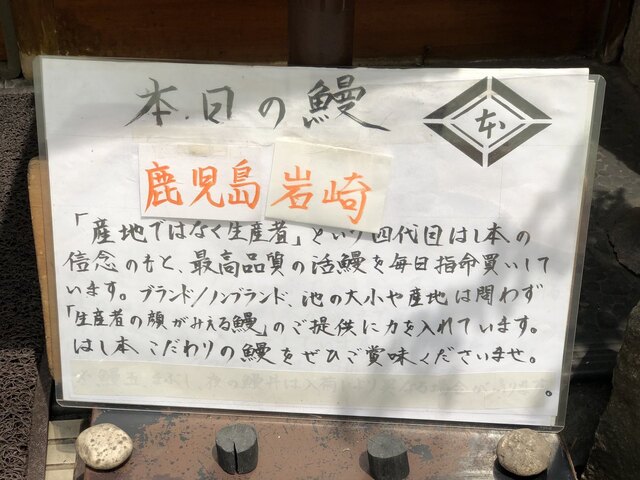 本日の鰻
本
鹿児島 岩崎
「産地ではなく生産者」という四代目はし本の
信念のもと、最高品質の活鰻を毎日指命買いして
います。ブランド/ノンブランド、池の大小や産地は問わず
「生産者の顔がみえる鰻」のご提供に力を入れています。
はし本こだわりの鰻をぜひご賞味くださいませ。